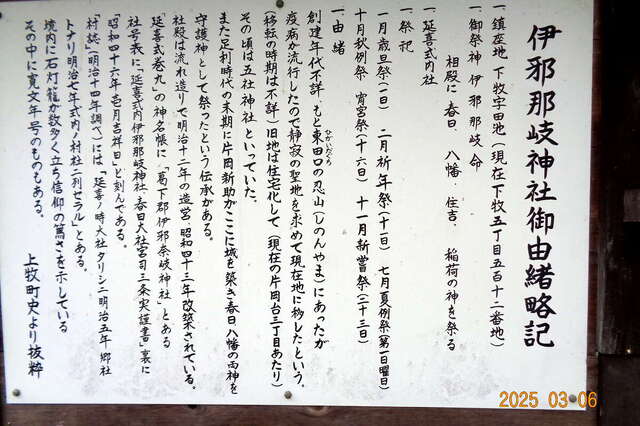 伊邪那岐神社御由緒略記
一、鎮座地 下牧字田池(現在下牧五丁目五百十二番地)
一、御祭神 伊邪那岐命
相殿に 春日 八幡 住吉 稲荷の神を祭る
一、延喜式内社
一、祭祀
一月歳旦祭(一日) 二月祈年祭(十一日) 七月夏例祭(第一日曜日)
十月秋例祭 宵宮祭(十六日) 十一月新嘗祭(二十三日)
一、由緒
創建年代不詳 もと東田口の忍山(しのんやま)にあったが
疫病が流行したので静寂の聖地を求めて現在地に移したという。
(移転の時期は不詳)旧地は住宅化して(現在の片岡台三丁目あたり)
その頃は五社神社といっていた。
また足利時代の末期に片岡新助がここに城を築き春日、八幡の両神を
守護神として祭ったという伝承がある。
社殿は流れ造りで明治十二年の造営、昭和四十三年改築されている。
「延喜式巻九」の神名帳に、「葛下郡伊邪奈岐神社」とある
社号表に、「延喜式内伊邪那岐神社、春日大社宮司三条実謹書」裏に
「昭和四十六年壱月吉祥日」と刻んである。
「村誌」(明治十四年調べ)には、「延喜ノ時大社タリシニ明治五年郷社
トナリ明治七年式内ノ村社ニ列セラル」とある。
境内に石灯籠が数多く立ち信仰の篤さを示している
その中に寛文年号のものもある。
上牧町史より抜粋
2025 03 06